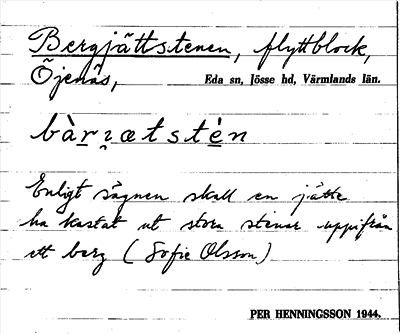 Bergjättstenen, flyttblock,
Öjenäs,
Eda sn, Jösse hd, Värmlands län.
bàr̠ı̯ætstè̠n
Enligt sägnen skall en jätte
ha kastat ut stora stenar uppifrån
ett berg (Sofie Olsson)
PER HENNINGSSON 1944.